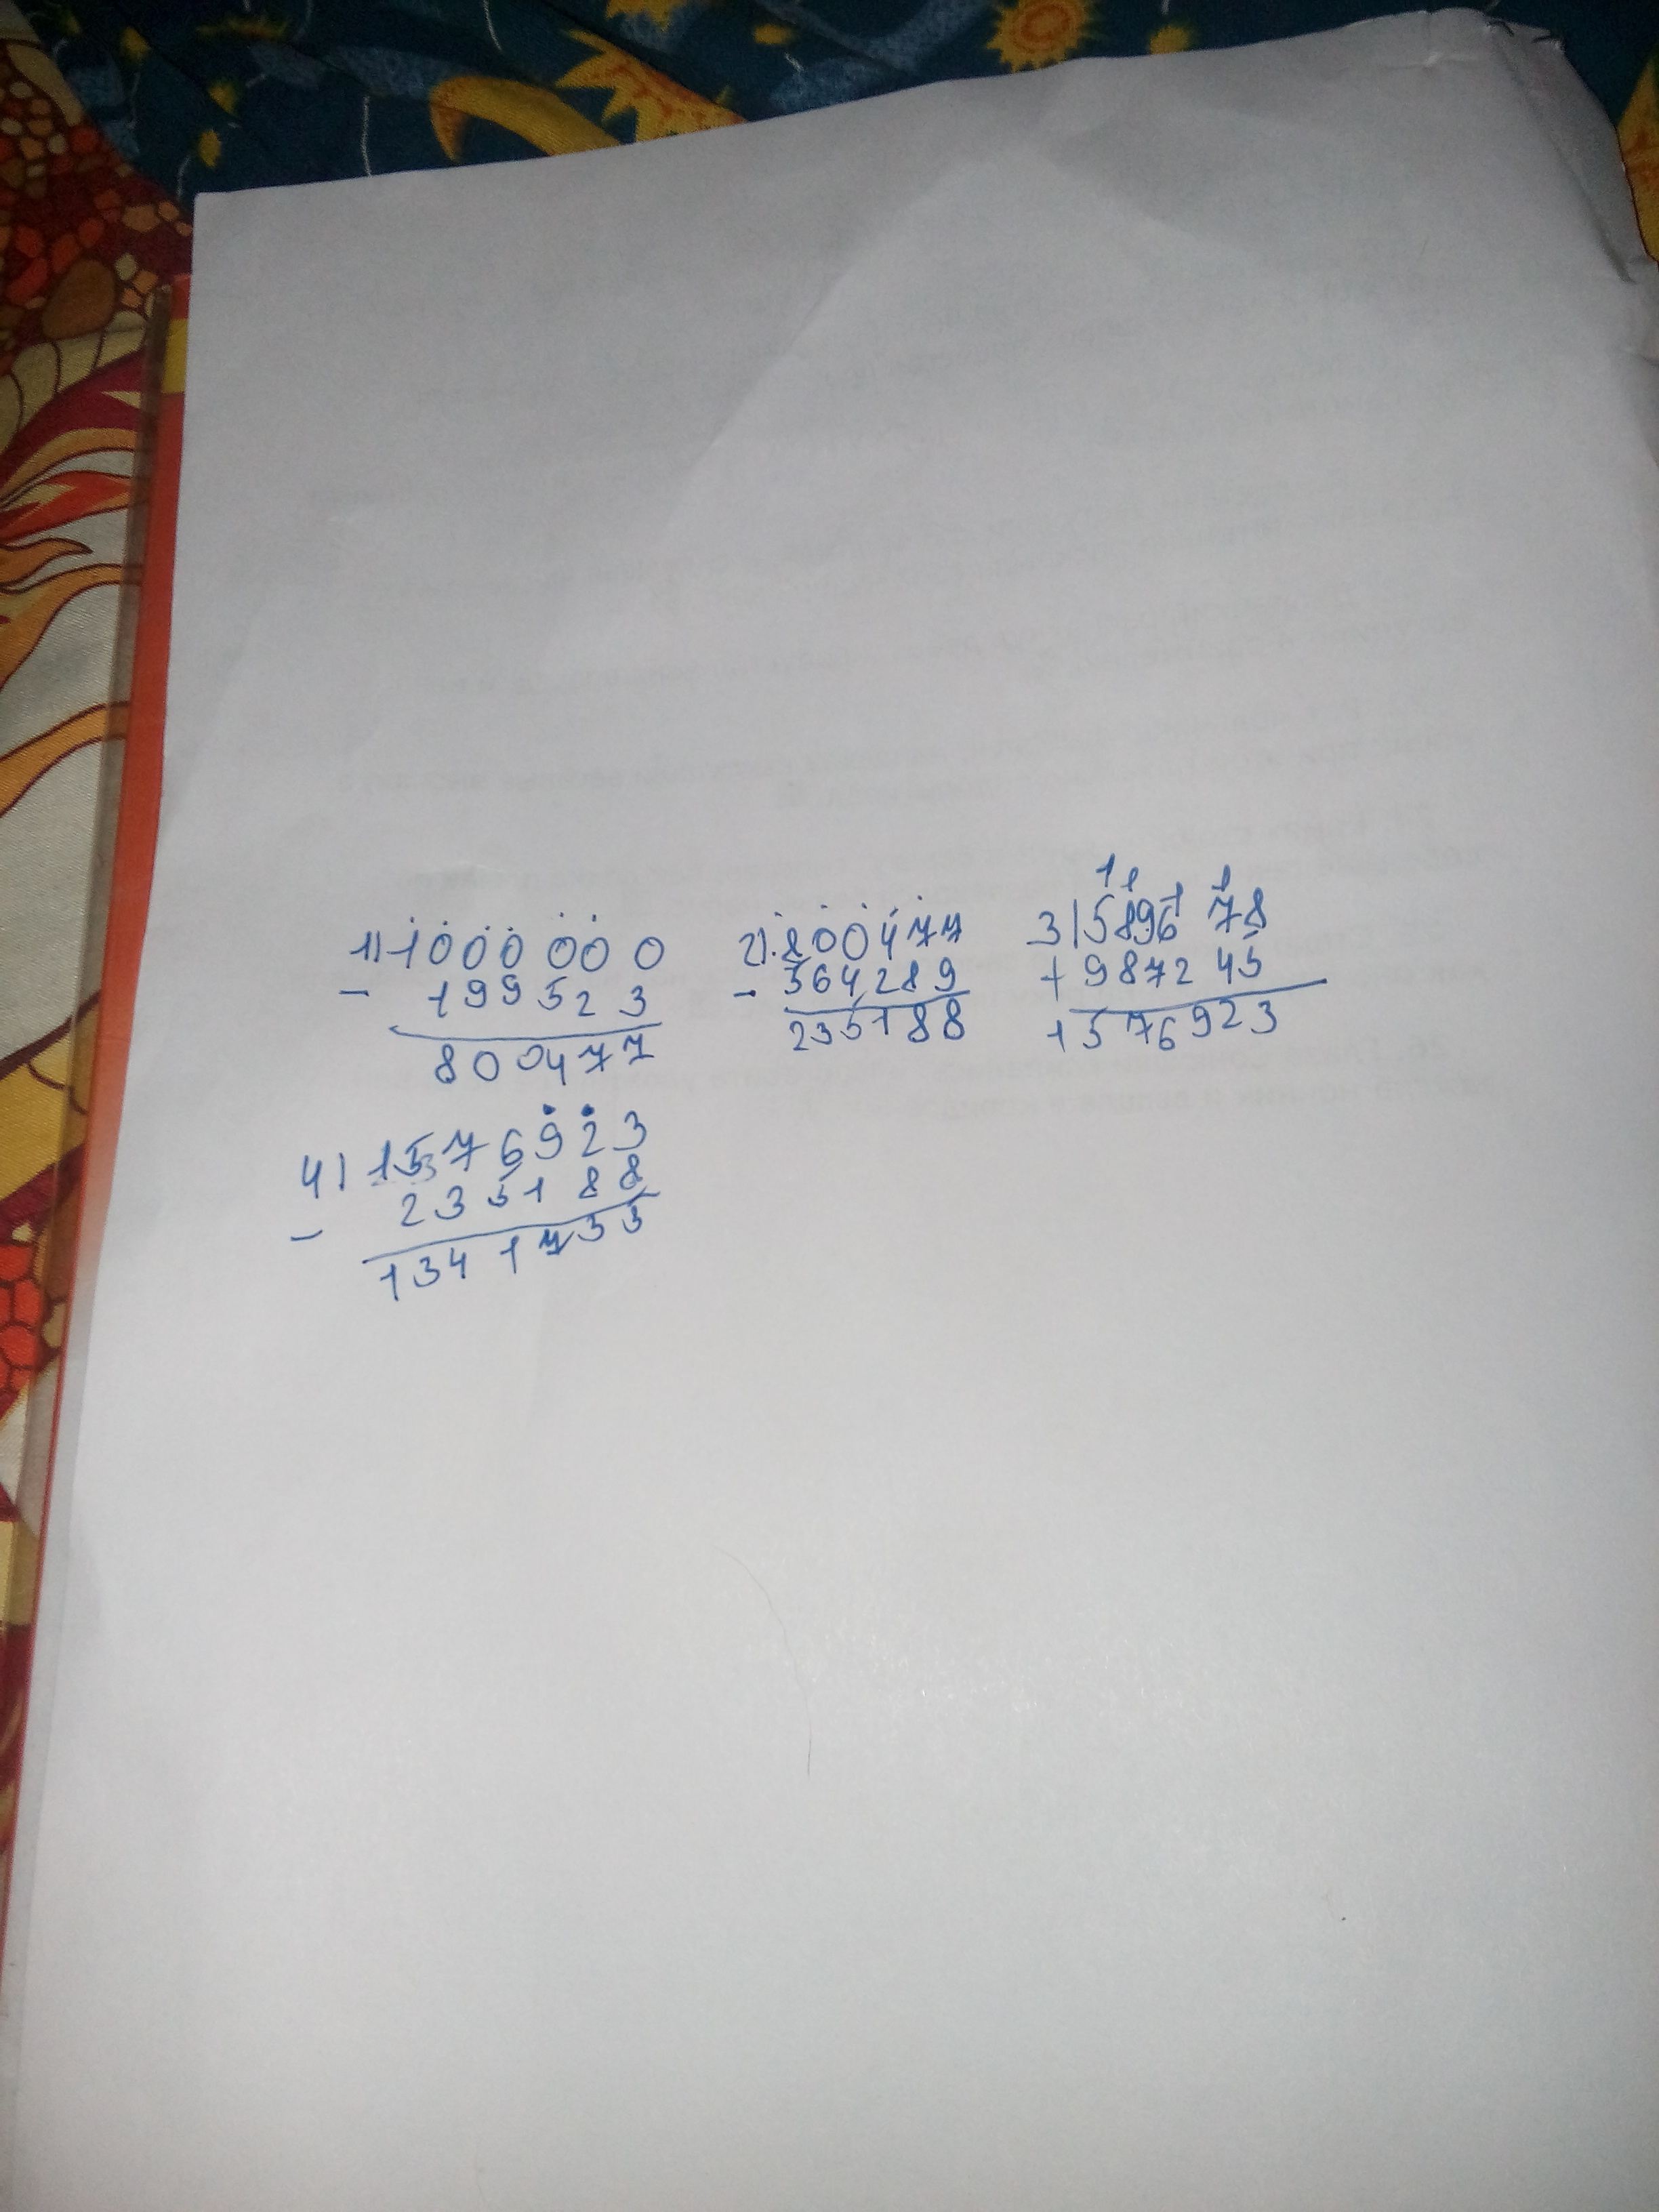 1) 1000000
- 199523
800477
2) 800477
- 564289
235188
1 1 1 1
3) 589678
+ 987245
1576923
4) 1576923
- 235188
1341735